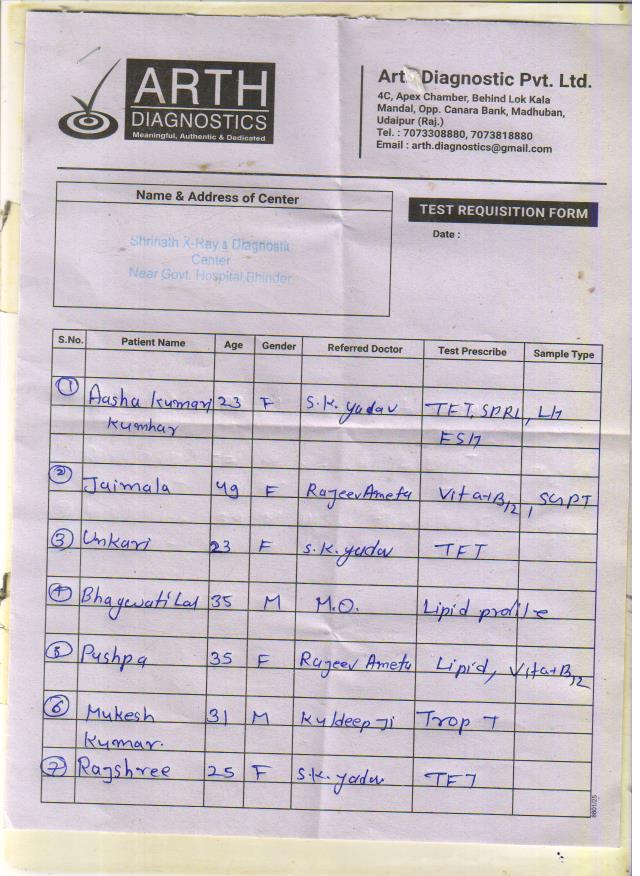 ARTH
DIAGNOSTICS
Meaningful, Authentic & Dedicated
Art Diagnostic Pvt. Ltd.
4C, Apex Chamber, Behind Lok Kala
Mandal, Opp. Canara Bank, Madhuban,
Udaipur (Raj.)
Tel. : 7073308880, 7073818880
Email : arth.diagnostics@gmail.com
Name & Address of Center
Shrinath X-Ray & Diagnostik
Center
Near Govt. Hospital,Bhinder
TEST REQUISITION FORM
Date :
S.No. Patient Name Age Gender Referred Doctor Test Prescribe Sample Type
1 Aasha Kumari 23 F S.K. Yadav TFT, SPRL, LH
Kumhar FSH
2 Jaimala 49 F Rajeev Ameta Vita+B12, SGPT
3 Unkari 23 F S.K. Yadav TFT
4 Bhagwati Lal 35 M M.O. Lipid profile
5 Pushpa 35 F Rajeev Ameta Lipid, Vita+B12
6 Mukesh 31 M Kuldeep Ji Trop T
Kumar.
7 Rajshree 25 F S.K. Yadav TFT
8801/25